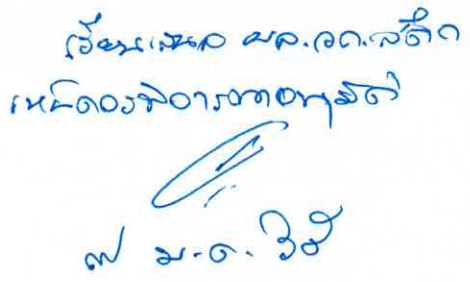 เรียนเสนอ ผอ.วค.สตึก
เห็นควรพิจารณาอนุมัติ
๗ ม.ค. ๖๕